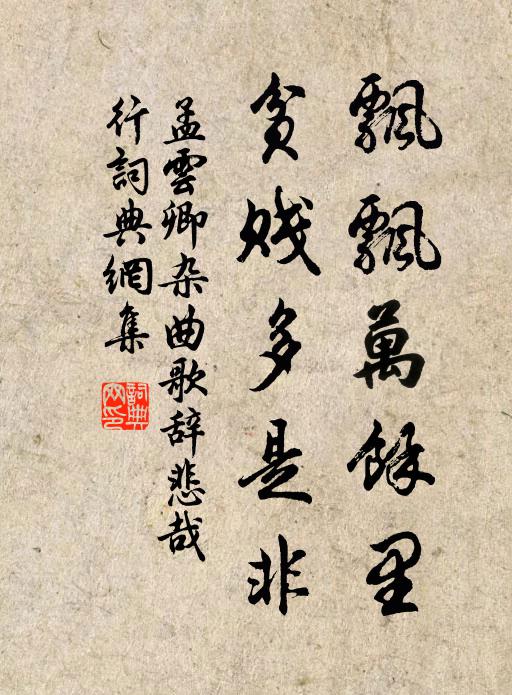 飄飄萬餘里
貧賤多是非
孟雲卿杂曲歌辞悲哉
行詞典網集
詞典
网印